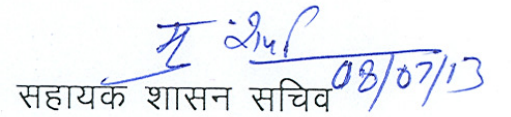 08/07/13
सहायक शासन सचिव